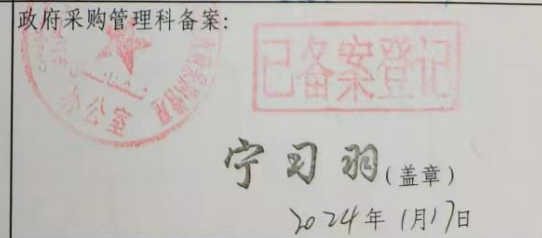 政府采购管理科备案:
已备案登记
办公室
宁习羽(盖章)
2024年1月17日